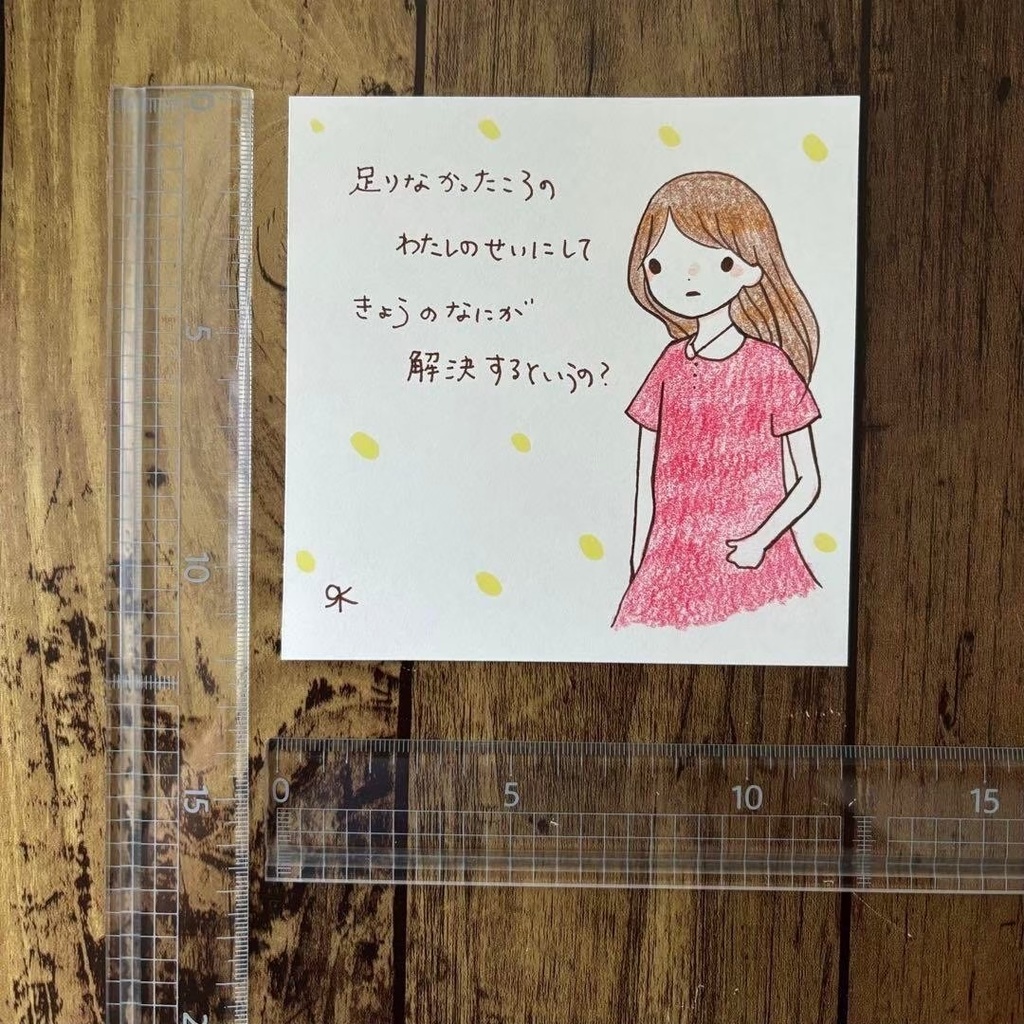 足りなかったころの
わたしのせいにして
きょうのなにが
解決するというの?
0
5
10
15
0
5
10
15